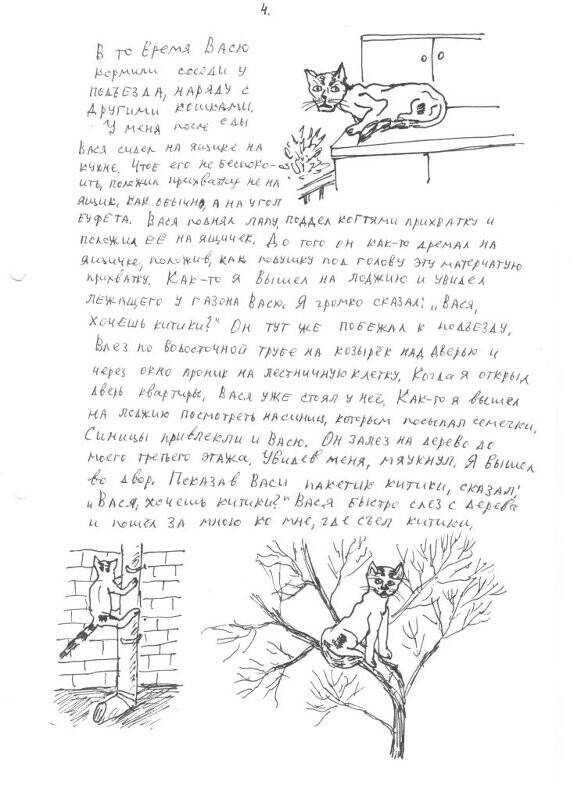 4.
В то время Васю
кормили соседи у
подъезда, наряду с
другими кошками.
У меня после еды
Вася сидел на ящике на
кухне. Чтоб его не беспоко-
ить, положил прихватку не на
ящик, как обычно, а на угол
буфета. Вася поднял лапу, поддел когтями прихватку и
положил её на ящичек. До того он как-то дремал на
ящичке, положив, как подушку под голову эту матерчатую
прихватку. Как-то я вышел на лоджию и увидел
лежащего у газона Васю. Я громко сказал: „Вася,
хочешь китики?" Он тут же побежал к подъезду,
Влез по водосточной трубе на козырёк над дверью и
через окно проник на лестничную клетку. Когда я открыл
дверь квартиры, Вася уже стоял у неё. Как-то я вышел
на лоджию посмотреть на синиц, которым посыпал семечки.
Синицы привлекли и Васю. Он залез на дерево до
моего третьего этажа. Увидев меня, мяукнул. Я вышел
во двор. Показав Васи пакетик китики, сказал:
„Вася, хочешь китики?" Вася быстро слез с дерева
и пошёл за мною ко мне, где съел китики.